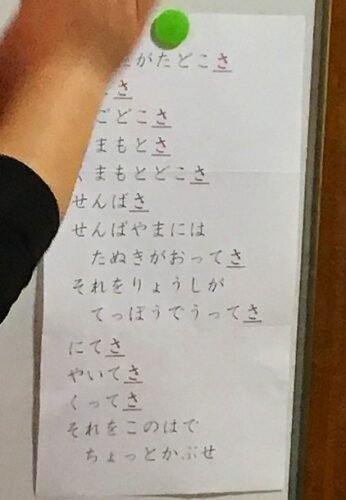 がたどこさ
さ
ごどこさ
まもとさ
くまもとどこさ
せんばさ
せんばやまには
たぬきがおってさ
それをりょうしが
てっぽうでうってさ
にてさ
やいてさ
くってさ
それをこのはで
ちょっとかぶせ